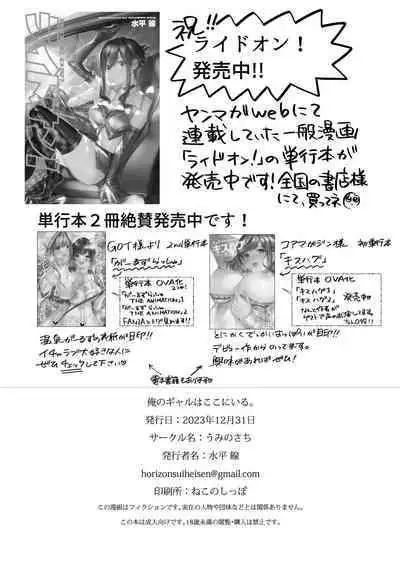 水平 線
祝!!
ライドオン!
発売中!!
ヤンマガwebにて
連載していた一般漫画
「ライドオン!」の単行本が
発売中です!全国の書店様
にて、買ってネ
単行本2冊絶賛発売中です!
GOT様より 2nd単行本
単行本 OVA化
THE ANIMATION
THE ANIMATION
コアマガジン様 初単行本
「キスハグ」
単行本 OVA化
「キスハグ1」
「キスハグ2」
発売中
イチャラブ大好きな人に
ぜひチェックして下さい
とにかくでっかいおっぱいが目印!!
デビュー作からのってます。
興味があればぜひ!
電子書籍もあります
俺のギャルはここにいる。
発行日:2023年12月31日
サークル名:うみのさち
発行者名:水平 線
horizonsuiheisen@gmail.com
印刷所:ねこのしっぽ
この漫画はフィクションです。実在の人物や団体などとは関係ありません。
この本は成人向けです。18歳未満の閲覧・購入は禁止です。